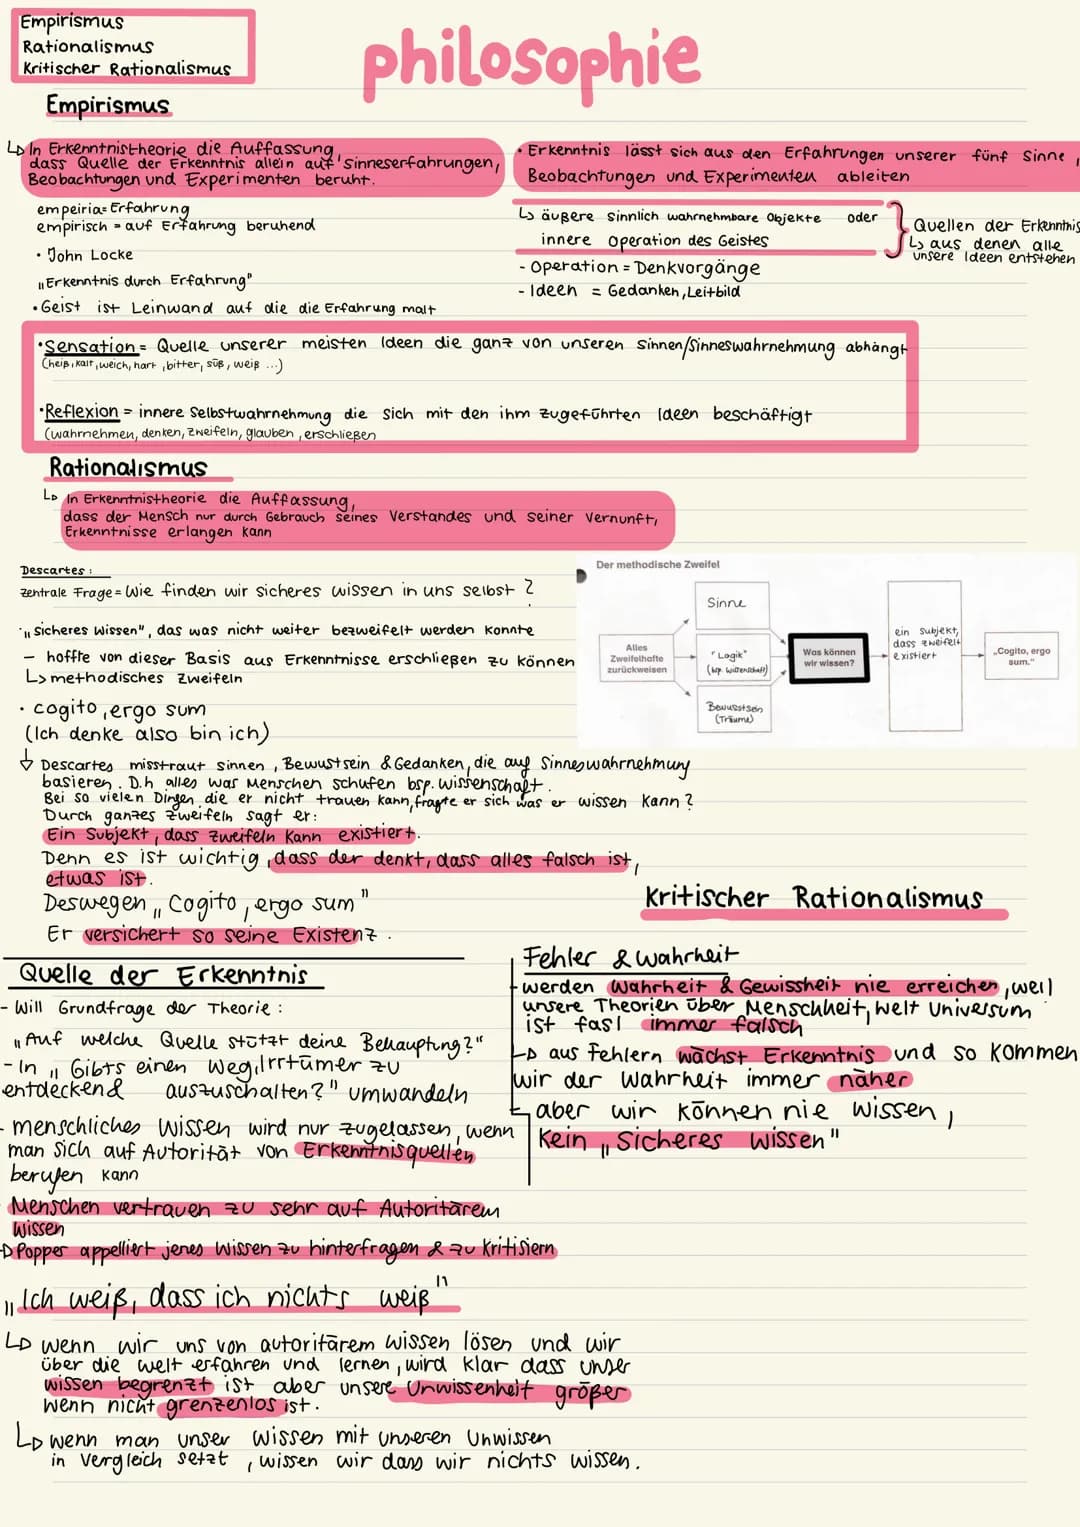 Empirismus
Rationalismus
Kritischer Rationalismus
philosophie
Empirismus
↳ In Erkenntnistheorie die Auffassung,
dass Quelle der Erkenntnis allein auf Sinneserfahrungen,
Beobachtungen und Experimenten beruht.
empeiria= Erfahrung
empirisch = auf Erfahrung beruhend
• John Locke
„Erkenntnis durch Erfahrung"
• Geist ist Leinwand auf die die Erfahrung malt
• Erkenntnis lässt sich aus den Erfahrungen unserer fünf Sinne,
Beobachtungen und Experimenten ableiten
↳ äußere sinnlich wahrnehmbare Objekte oder
innere Operation des Geistes
- Operation = Denkvorgänge
- Ideen = Gedanken, Leitbild
Quellen der Erkenntnis
↳ aus denen alle
unsere Ideen entstehen
• Sensation = Quelle unserer meisten Ideen die ganz von unseren sinnen/Sinneswahrnehmung abhängt
(heiß, kalt, weich, hart, bitter, süß, weiß ...)
• Reflexion = innere Selbstwahrnehmung die sich mit den ihm zugeführten Ideen beschäftigt
(wahrnehmen, denken, zweifeln, glauben, erschließen
Rationalismus
↳ In Erkenntnistheorie die Auffassung,
dass der Mensch nur durch Gebrauch seines Verstandes und seiner Vernunft,
Erkenntnisse erlangen kann
Descartes:
zentrale Frage = Wie finden wir sicheres wissen in uns selbst?
• „sicheres Wissen", das was nicht weiter bezweifelt werden konnte
- hoffte von dieser Basis aus Erkenntnisse erschließen zu können
↳ methodisches Zweifeln
• cogito, ergo sum
(Ich denke also bin ich)
Der methodische Zweifel
Alles
Zweifelhafte
zurückweisen
Sinne
"Logik"
(bsp. Wissenschaft)
Bewusstsein
(Träume)
Was können
wir wissen?
ein Subjekt,
dass zweifelt
existiert
„Cogito, ergo
sum."
↓ Descartes misstraut sinnen, Bewustsein & Gedanken, die auf Sinneswahrnehmung
basieren. D.h alles was Menschen schufen bsp. Wissenschaft.
Bei so vielen Dingen die er nicht trauen kann, fragte er sich was er wissen kann?
Durch ganzes zweifeln sagt er:
Ein Subjekt, dass zweifeln kann existiert.
Denn es ist wichtig, dass der denkt, dass alles falsch ist,
etwas ist.
Deswegen „Cogito, ergo sum"
Er versichert so seine Existenz.
Quelle der Erkenntnis
- Will Grundfrage der Theorie:
„Auf welche Quelle stützt deine Behauptung?"
- In „Gibts einen Weg, Irrtümer zu
entdeckend auszuschalten?" umwandeln
- menschliches Wissen wird nur zugelassen, wenn
man sich auf Autorität von Erkenntnisquellen
berufen kann
Menschen vertrauen zu sehr auf Autoritärem
Wissen
↳ Popper appelliert jenes Wissen zu hinterfragen & zu kritisiern
„Ich weiß, dass ich nichts weiß"
↳ wenn wir uns von autoritärem Wissen lösen und wir
über die welt erfahren und lernen, wird klar dass unser
wissen begrenzt ist aber unsere Unwissenheit größer
wenn nicht grenzenlos ist.
↳ wenn man unser Wissen mit unseren Unwissen
in vergleich setzt, wissen wir dass wir nichts wissen.
Kritischer Rationalismus
Fehler & wahrheit
- werden Wahrheit & Gewissheit nie erreichen, weil
unsere Theorien über Menschheit, Welt Universum
ist fasl immer falsch
↳ aus Fehlern wächst Erkenntnis und so kommen
wir der Wahrheit immer näher
↳ aber wir können nie wissen,
kein „Sicheres Wissen"